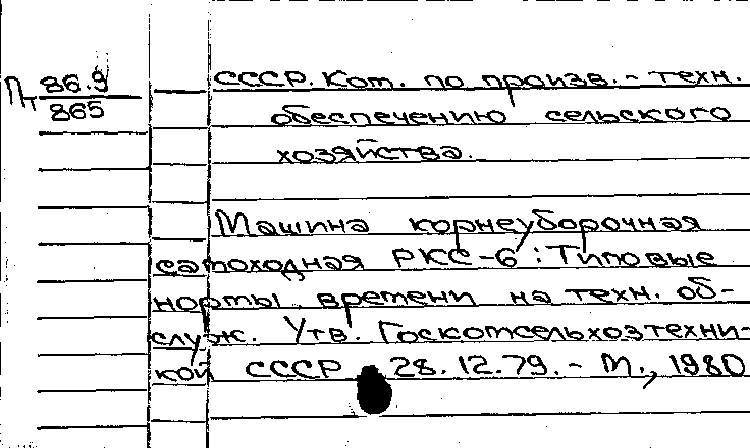 Пт 86.9
865
СССР. Ком. по произв.-техн.
обеспечению сельского
хозяйства.
Машина корнеуборочная
самоходная РКС-6 : Типовые
нормы времени на техн. об-
служ. Утв. Госкомсельхозтехни-
кой СССР 28.12.79. - М., 1980